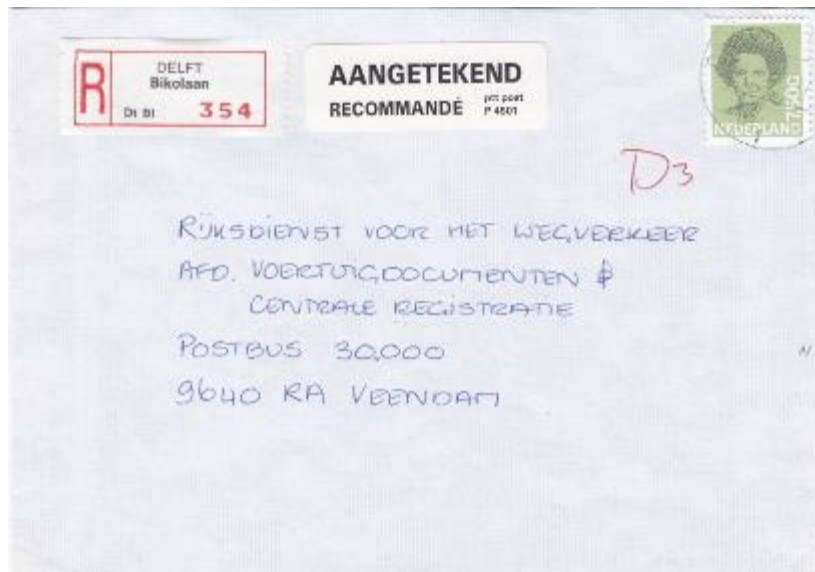 R
DELFT
Bikolaan
Dt Bl 354
AANGETEKEND
RECOMMANDÉ ptt post
P 4601
NEDERLAND 7,50G
D3
RIJKSDIENST VOOR HET WEGVERKEER
AFD. VOERTUIGDOCUMENTEN &
CENTRALE REGISTRATIE
POSTBUS 30.000
9640 RA VEENDAM